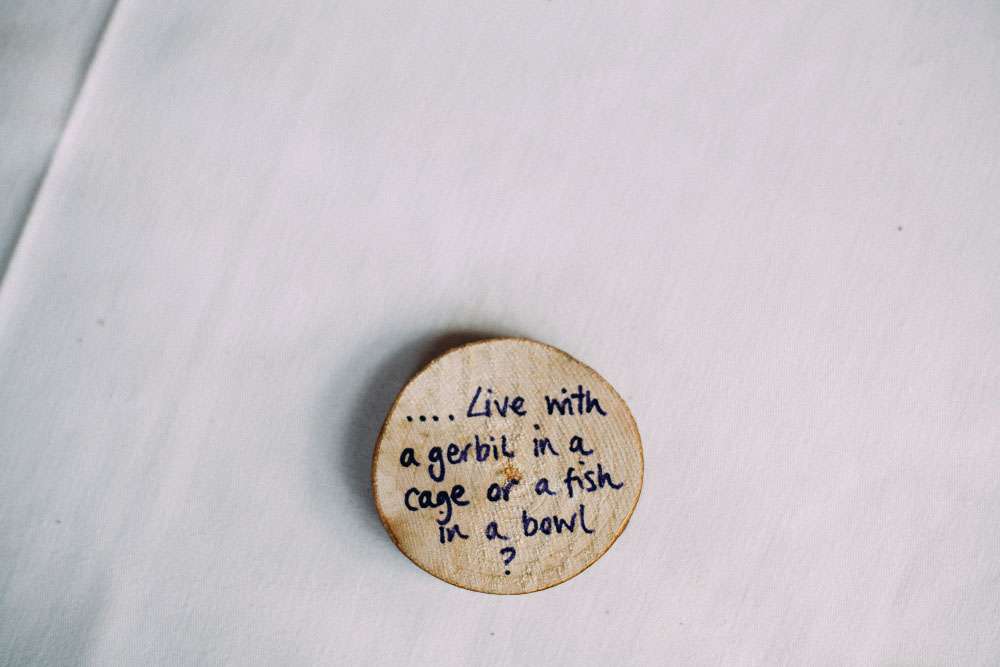 .... Live with
a gerbil in a
cage or a fish
in a bowl
?